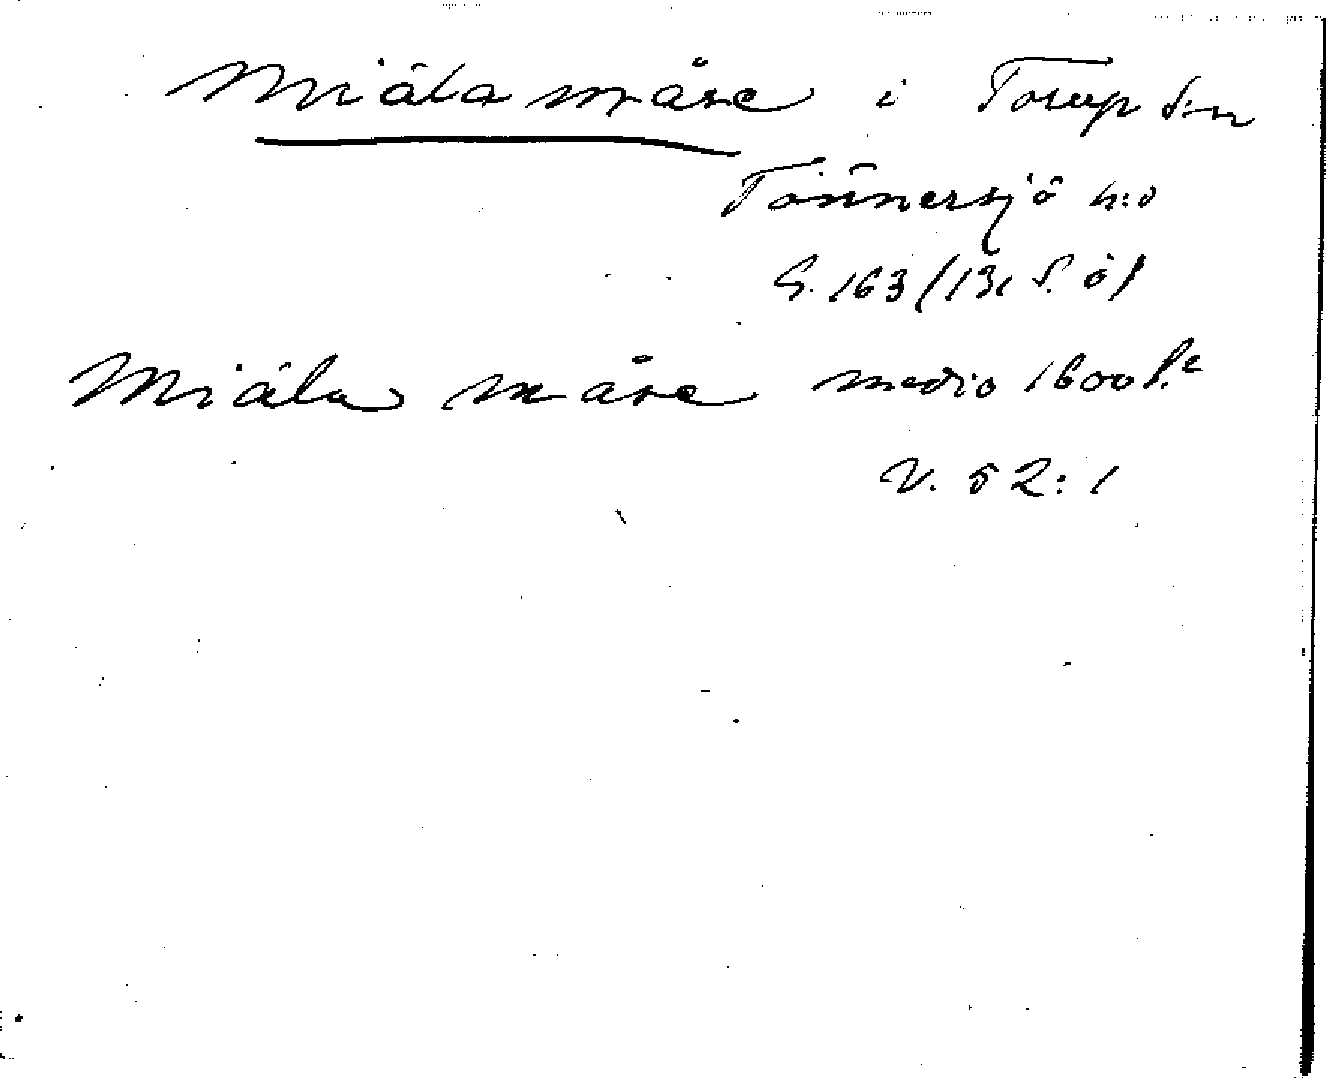 Miåla måse i Torup s:n
Tönnersjö h:d
G. 163/131 S. ö/
Miåla måse medio 1600 t.
V. 52:1